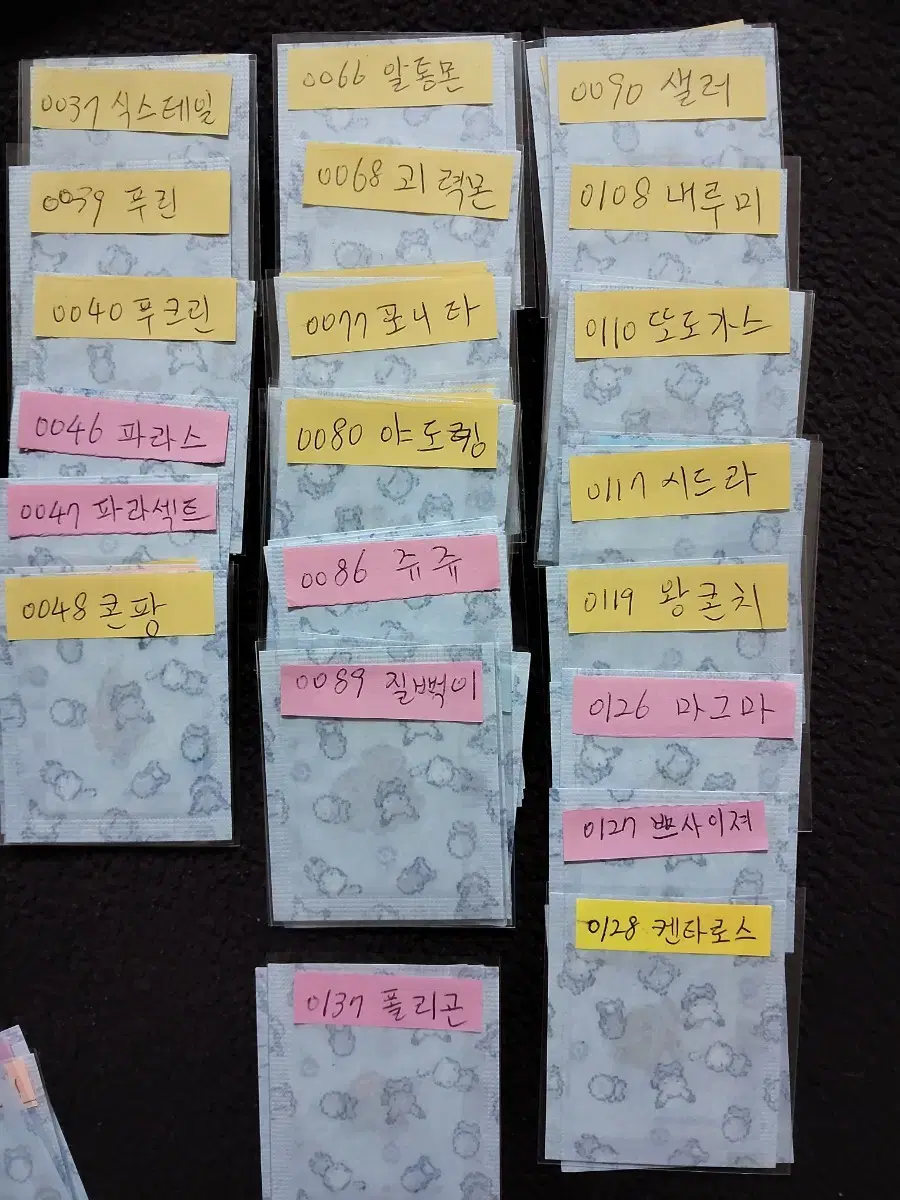 0037 식스테일
0039 푸린
0040 푸크린
0046 파라스
0047 파라섹트
0048 콘팡
0066 알통몬
0068 괴력몬
0077 포니타
0080 야도킹
0086 쥬쥬
0089 질뻐기
0137 폴리곤
0090 셀러
0108 내루미
0110 또도가스
0117 시드라
0119 왕콘치
0126 마그마
0127 쁘사이져
0128 켄타로스